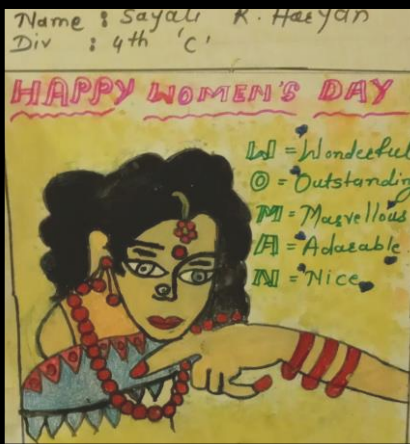 Name : Sayali R. Haryan
Div : 4th 'C'
HAPPY WOMEN'S DAY
W = Wonderful
O = Outstanding
M = Marvellous
A = Adarable
N = Nice